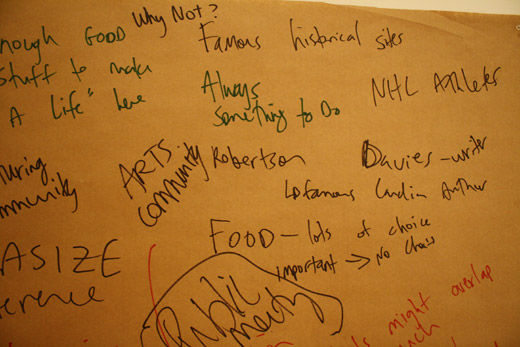 Why Not?
Famous historical sites
nough GOOD
Stuff to make
A life" here
Always
Something to Do
NHL Athletes
ARTS
community
Robertson Davies - writer
famous Author
mmunity
FOOD - lots of choice
important → No
ASIZE
erence
Public
might overlap